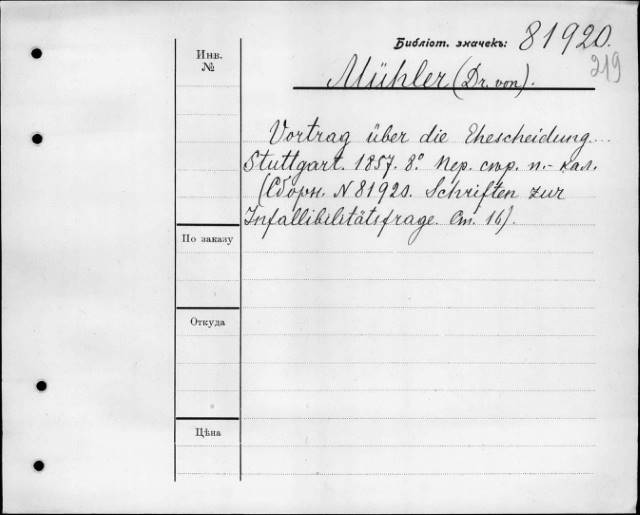 Библіот. значекъ: 81920.
219
Инв.
№
Mühler (Dr. von).
Vortrag über die Ehescheidung...
Stuttgart. 1857. 8°. Пер. стр. п.-кал.
(Сборн. N 81920. Schriften zur
Infallibilitätsfrage. Ст. 16).
По заказу
Откуда
Цѣна